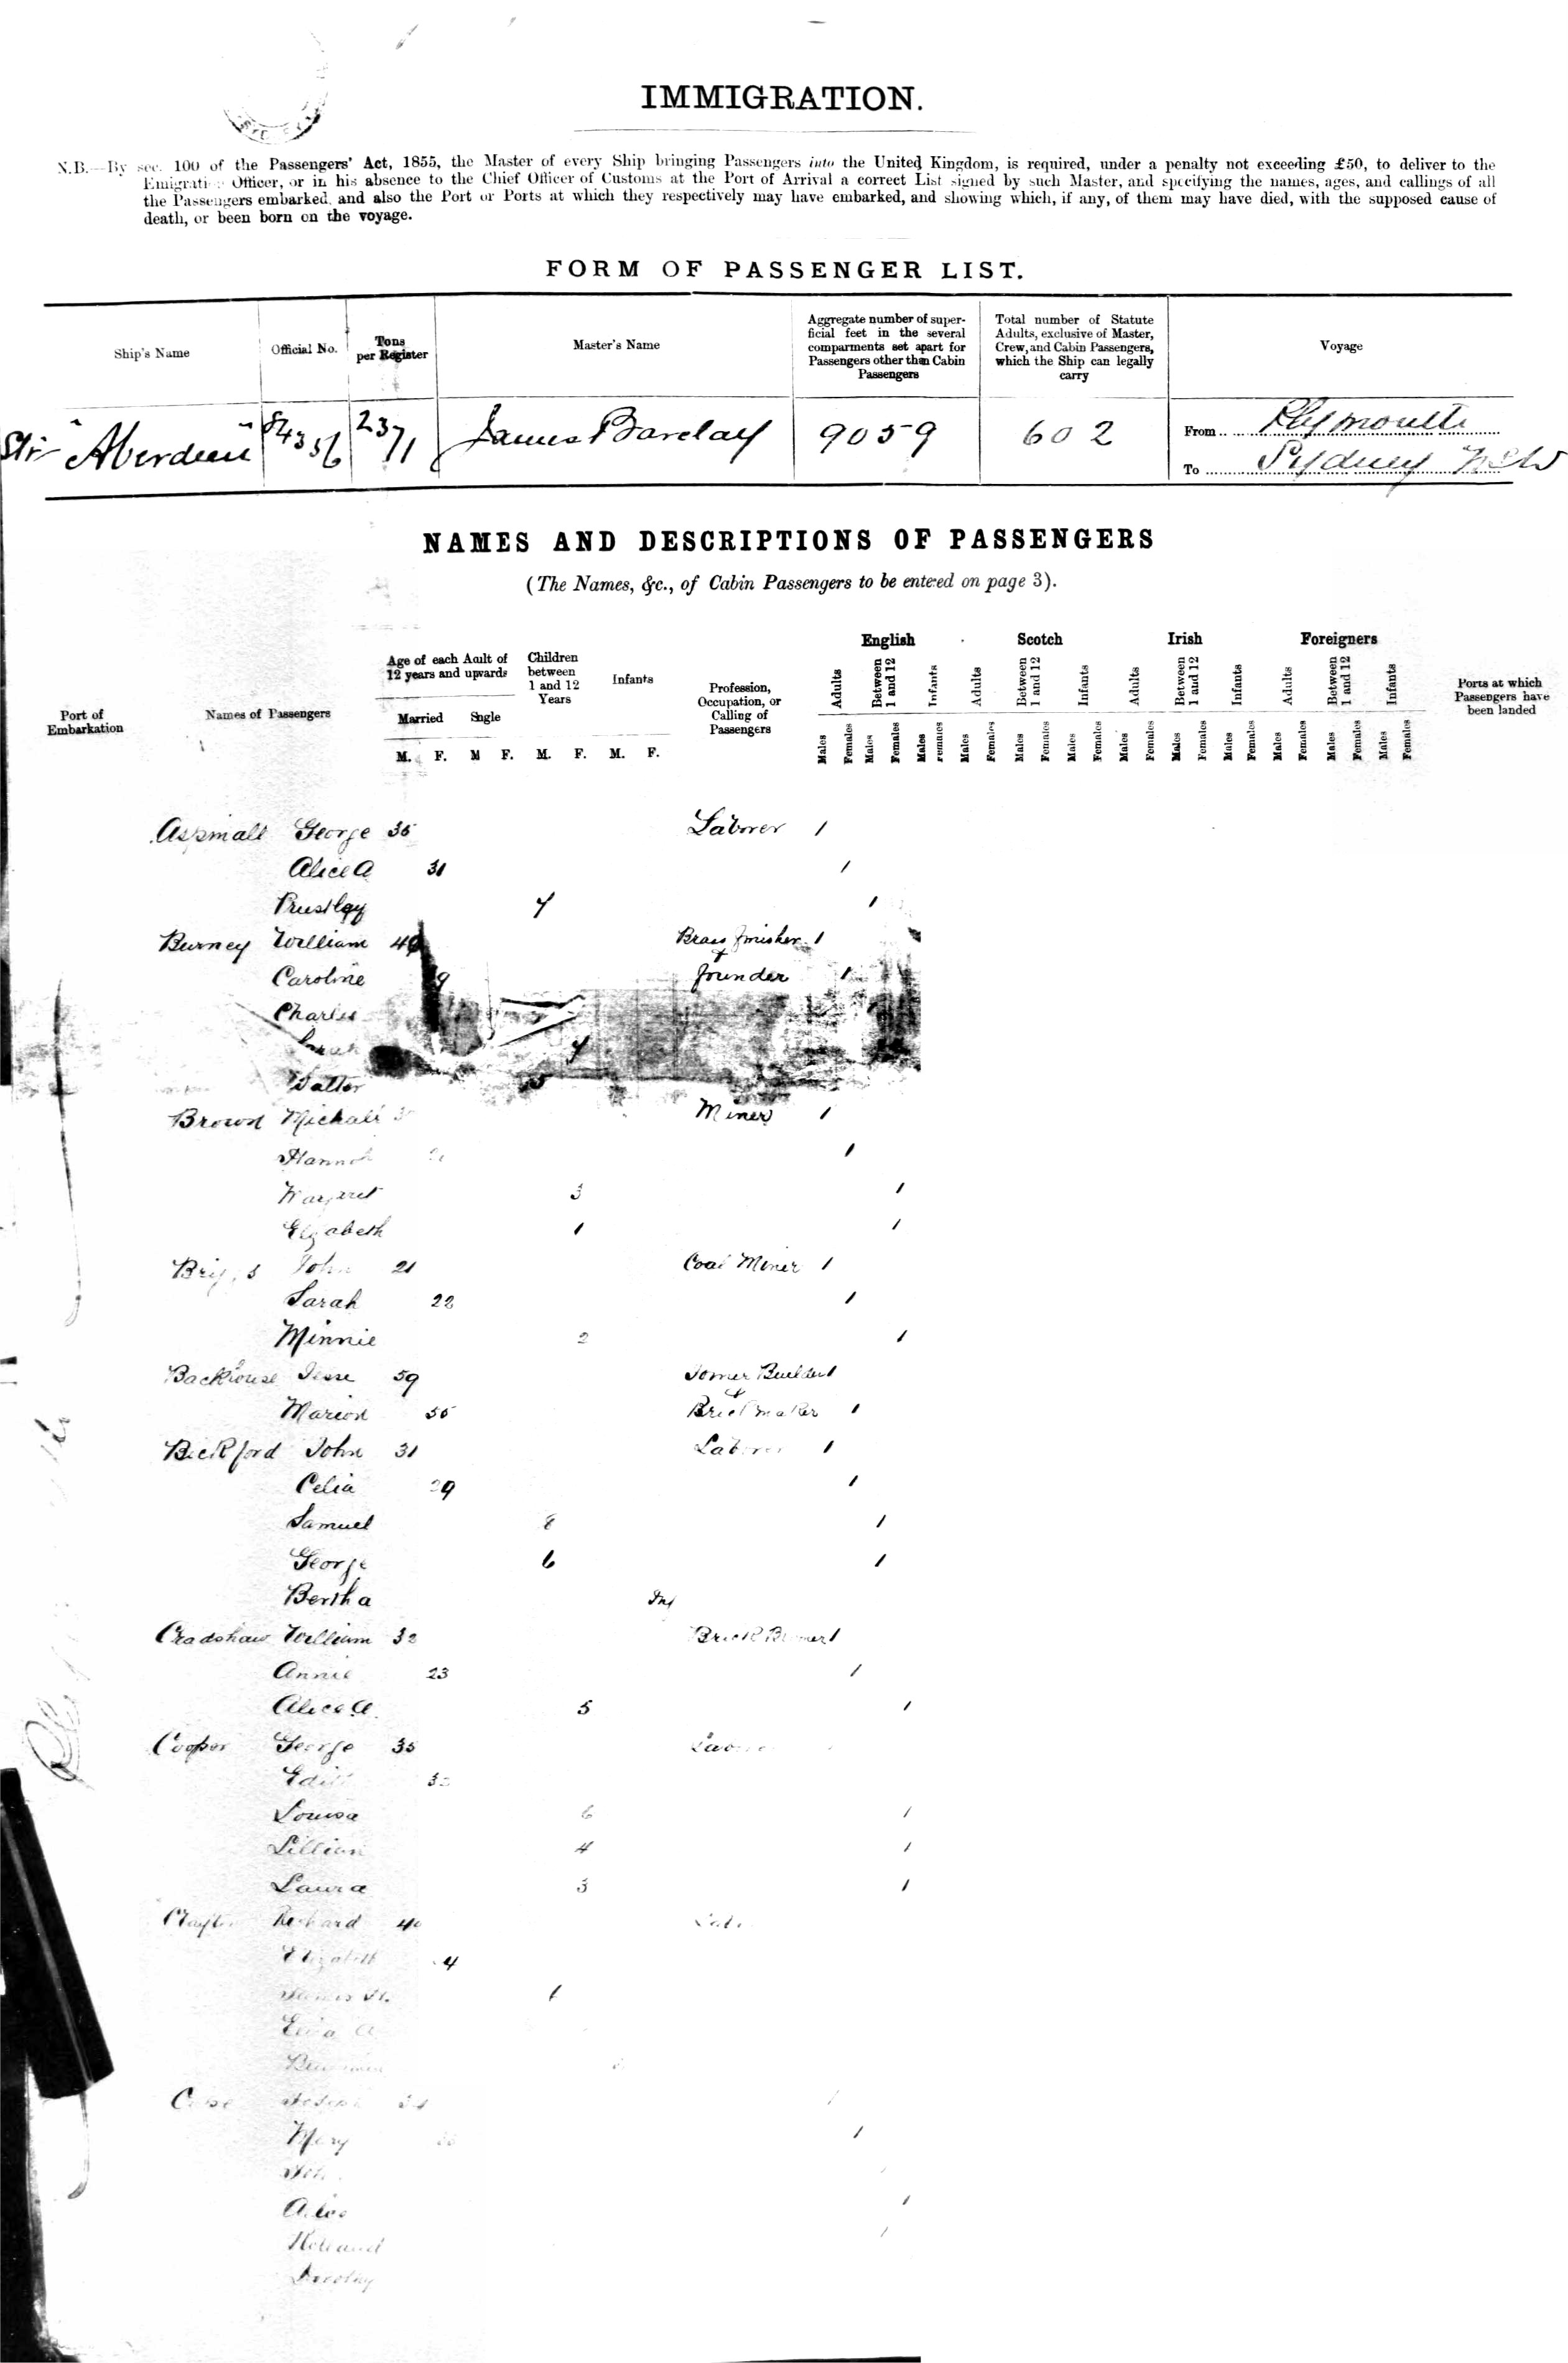 IMMIGRATION.
N.B.—By sec. 100 of the Passengers' Act, 1855, the Master of every Ship bringing Passengers into the United Kingdom, is required, under a penalty not exceeding £50, to deliver to the
Emigration Officer, or in his absence to the Chief Officer of Customs at the Port of Arrival a correct List signed by such Master, and specifying the names, ages, and callings of all
the Passengers embarked, and also the Port or Ports at which they respectively may have embarked, and showing which, if any, of them may have died, with the supposed cause of
death, or been born on the voyage.
FORM OF PASSENGER LIST.
Ship's Name
Official No.
Tons per Register
Master's Name
Aggregate number of superficial feet in the several comparments set apart for Passengers other than Cabin Passengers
Total number of Statute Adults, exclusive of Master, Crew, and Cabin Passengers, which the Ship can legally carry
Voyage
Str "Aberdeen" 84356 2371 James Barclay 9059 602 From Plymouth
To Sydney NSW
NAMES AND DESCRIPTIONS OF PASSENGERS
(The Names, &c., of Cabin Passengers to be entered on page 3).
English Scotch Irish Foreigners
Port of Embarkation
Names of Passengers
Age of each Adult of 12 years and upwards
Married Single
M. F. M F.
Children between 1 and 12 Years
M. F.
Infants
M. F.
Profession, Occupation, or Calling of Passengers
Adults Between 1 and 12 Infants Adults Between 1 and 12 Infants Adults Between 1 and 12 Infants Adults Between 1 and 12 Infants
Males Females Males Females Males Females Males Females Males Females Males Females Males Females Males Females Males Females Males Females Males Females Males Females
Ports at which Passengers have been landed
Aspinall George 35 Laborer 1
Alice A 31 1
Priestley 7 1
Burney William Brass finisher 1
Caroline founder 1
Charles
Walter
Brown Michael Miner 1
Hannah 1
Margaret 3 1
Elizabeth 1 1
Briggs John 21 Coal Miner 1
Sarah 22 1
Minnie 2 1
Backhouse Jesse 59 Joiner Builder 1
Marion 55 & Brick maker 1
Bickford John 31 Laborer 1
Celia 29 1
Samuel 8 1
George 6 1
Bertha Inf
Cradshaw William 32 Brick Burner 1
Annie 23 1
Alice A. 5 1
Cooper George 35 Laborer
Edith
Louisa 6 1
Lillian 4 1
Laura 3 1
Richard 40
Elizabeth
Eliza A
Mary 1
Alice 1
Holland
Dorothy